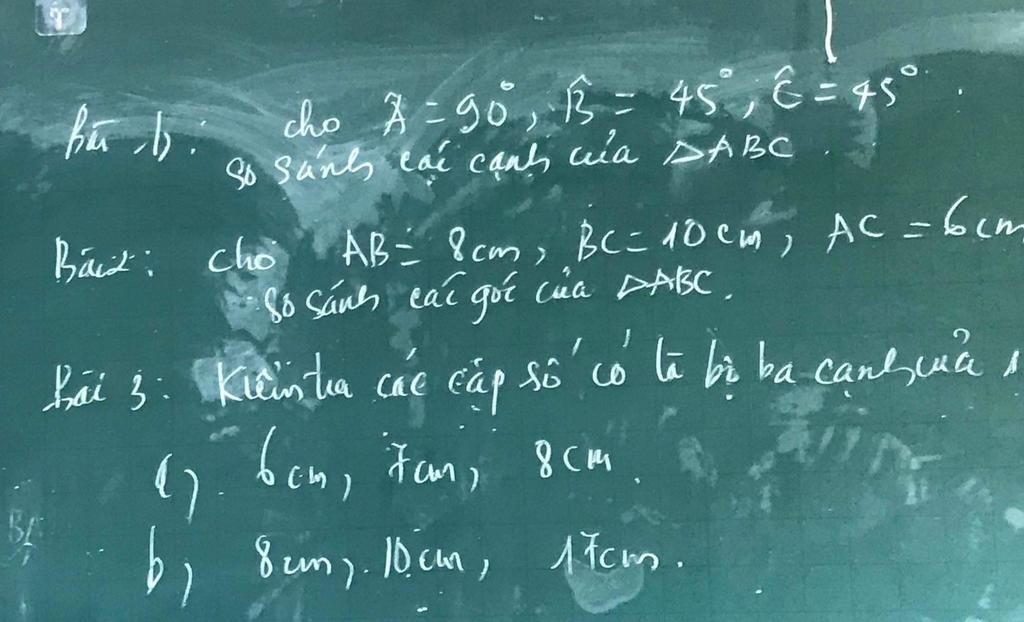 Bài 1: cho Â = 90°, B̂ = 45°, Ĉ = 45°.
so sánh các cạnh của △ABC.
Bài 2: cho AB = 8cm, BC = 10cm, AC = 6cm
so sánh các góc của △ABC.
Bài 3: Kiểm tra các cặp số có là bộ ba cạnh của 1
a) 6cm, 7cm, 8cm.
b, 8cm, 10cm, 17cm.